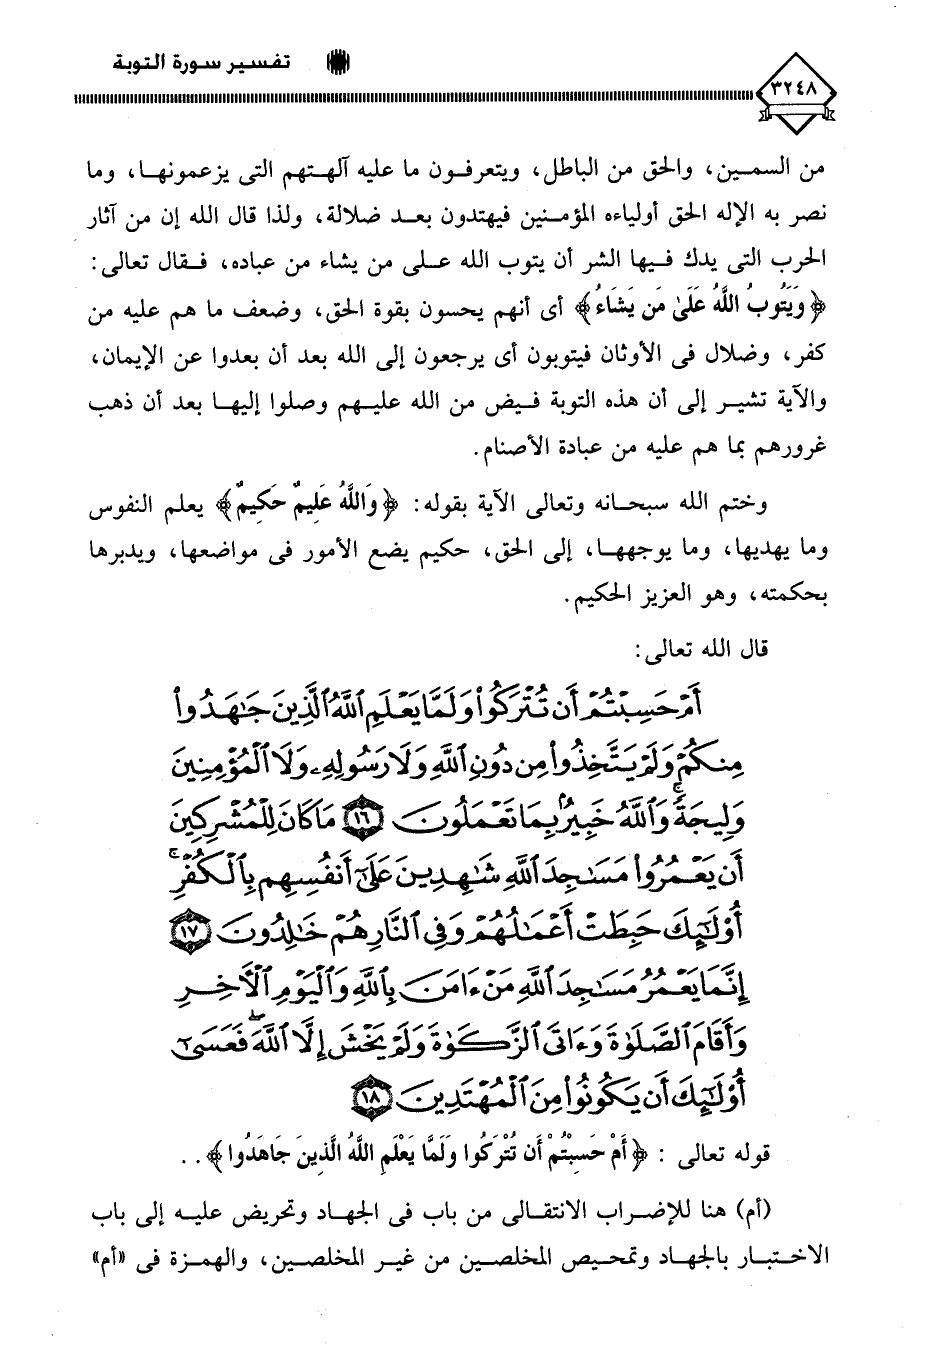 ٣٢٤٨
تفسير سورة التوبة
من السمين، والحق من الباطل، ويتعرفون ما عليه آلهتهم التى يزعمونها، وما
نصر به الإله الحق أولياءه المؤمنين فيهتدون بعد ضلالة، ولذا قال الله إن من آثار
الحرب التى يدك فيها الشر أن يتوب الله على من يشاء من عباده، فقال تعالى:
﴿وَيَتُوبُ اللَّهُ عَلَىٰ مَن يَشَاءُ﴾ أى أنهم يحسون بقوة الحق، وضعف ما هم عليه من
كفر، وضلال فى الأوثان فيتوبون أى يرجعون إلى الله بعد أن بعدوا عن الإيمان،
والآية تشير إلى أن هذه التوبة فيض من الله عليهم وصلوا إليها بعد أن ذهب
غرورهم بما هم عليه من عبادة الأصنام.
وختم الله سبحانه وتعالى الآية بقوله: ﴿وَاللَّهُ عَلِيمٌ حَكِيمٌ﴾ يعلم النفوس
وما يهديها، وما يوجهها، إلى الحق، حكيم يضع الأمور فى مواضعها، ويدبرها
بحكمته، وهو العزيز الحكيم.
قال الله تعالى:
أَمْ حَسِبْتُمْ أَن تُتْرَكُوا۟ وَلَمَّا يَعْلَمِ ٱللَّهُ ٱلَّذِينَ جَـٰهَدُوا۟
مِنكُمْ وَلَمْ يَتَّخِذُوا۟ مِن دُونِ ٱللَّهِ وَلَا رَسُولِهِۦ وَلَا ٱلْمُؤْمِنِينَ
وَلِيجَةً ۚ وَٱللَّهُ خَبِيرٌۢ بِمَا تَعْمَلُونَ ١٦ مَا كَانَ لِلْمُشْرِكِينَ
أَن يَعْمُرُوا۟ مَسَـٰجِدَ ٱللَّهِ شَـٰهِدِينَ عَلَىٰٓ أَنفُسِهِم بِٱلْكُفْرِ ۚ
أُو۟لَـٰٓئِكَ حَبِطَتْ أَعْمَـٰلُهُمْ وَفِى ٱلنَّارِ هُمْ خَـٰلِدُونَ ١٧
إِنَّمَا يَعْمُرُ مَسَـٰجِدَ ٱللَّهِ مَنْ ءَامَنَ بِٱللَّهِ وَٱلْيَوْمِ ٱلْـَٔاخِرِ
وَأَقَامَ ٱلصَّلَوٰةَ وَءَاتَى ٱلزَّكَوٰةَ وَلَمْ يَخْشَ إِلَّا ٱللَّهَ ۖ فَعَسَىٰٓ
أُو۟لَـٰٓئِكَ أَن يَكُونُوا۟ مِنَ ٱلْمُهْتَدِينَ ١٨
قوله تعالى : ﴿أَمْ حَسِبْتُمْ أَن تُتْرَكُوا وَلَمَّا يَعْلَمِ اللَّهُ الَّذِينَ جَاهَدُوا﴾ . .
(أم) هنا للإضراب الانتقالى من باب فى الجهاد وتحريض عليه إلى باب
الاختبار بالجهاد وتمحيص المخلصين من غير المخلصين، والهمزة فى «أم»